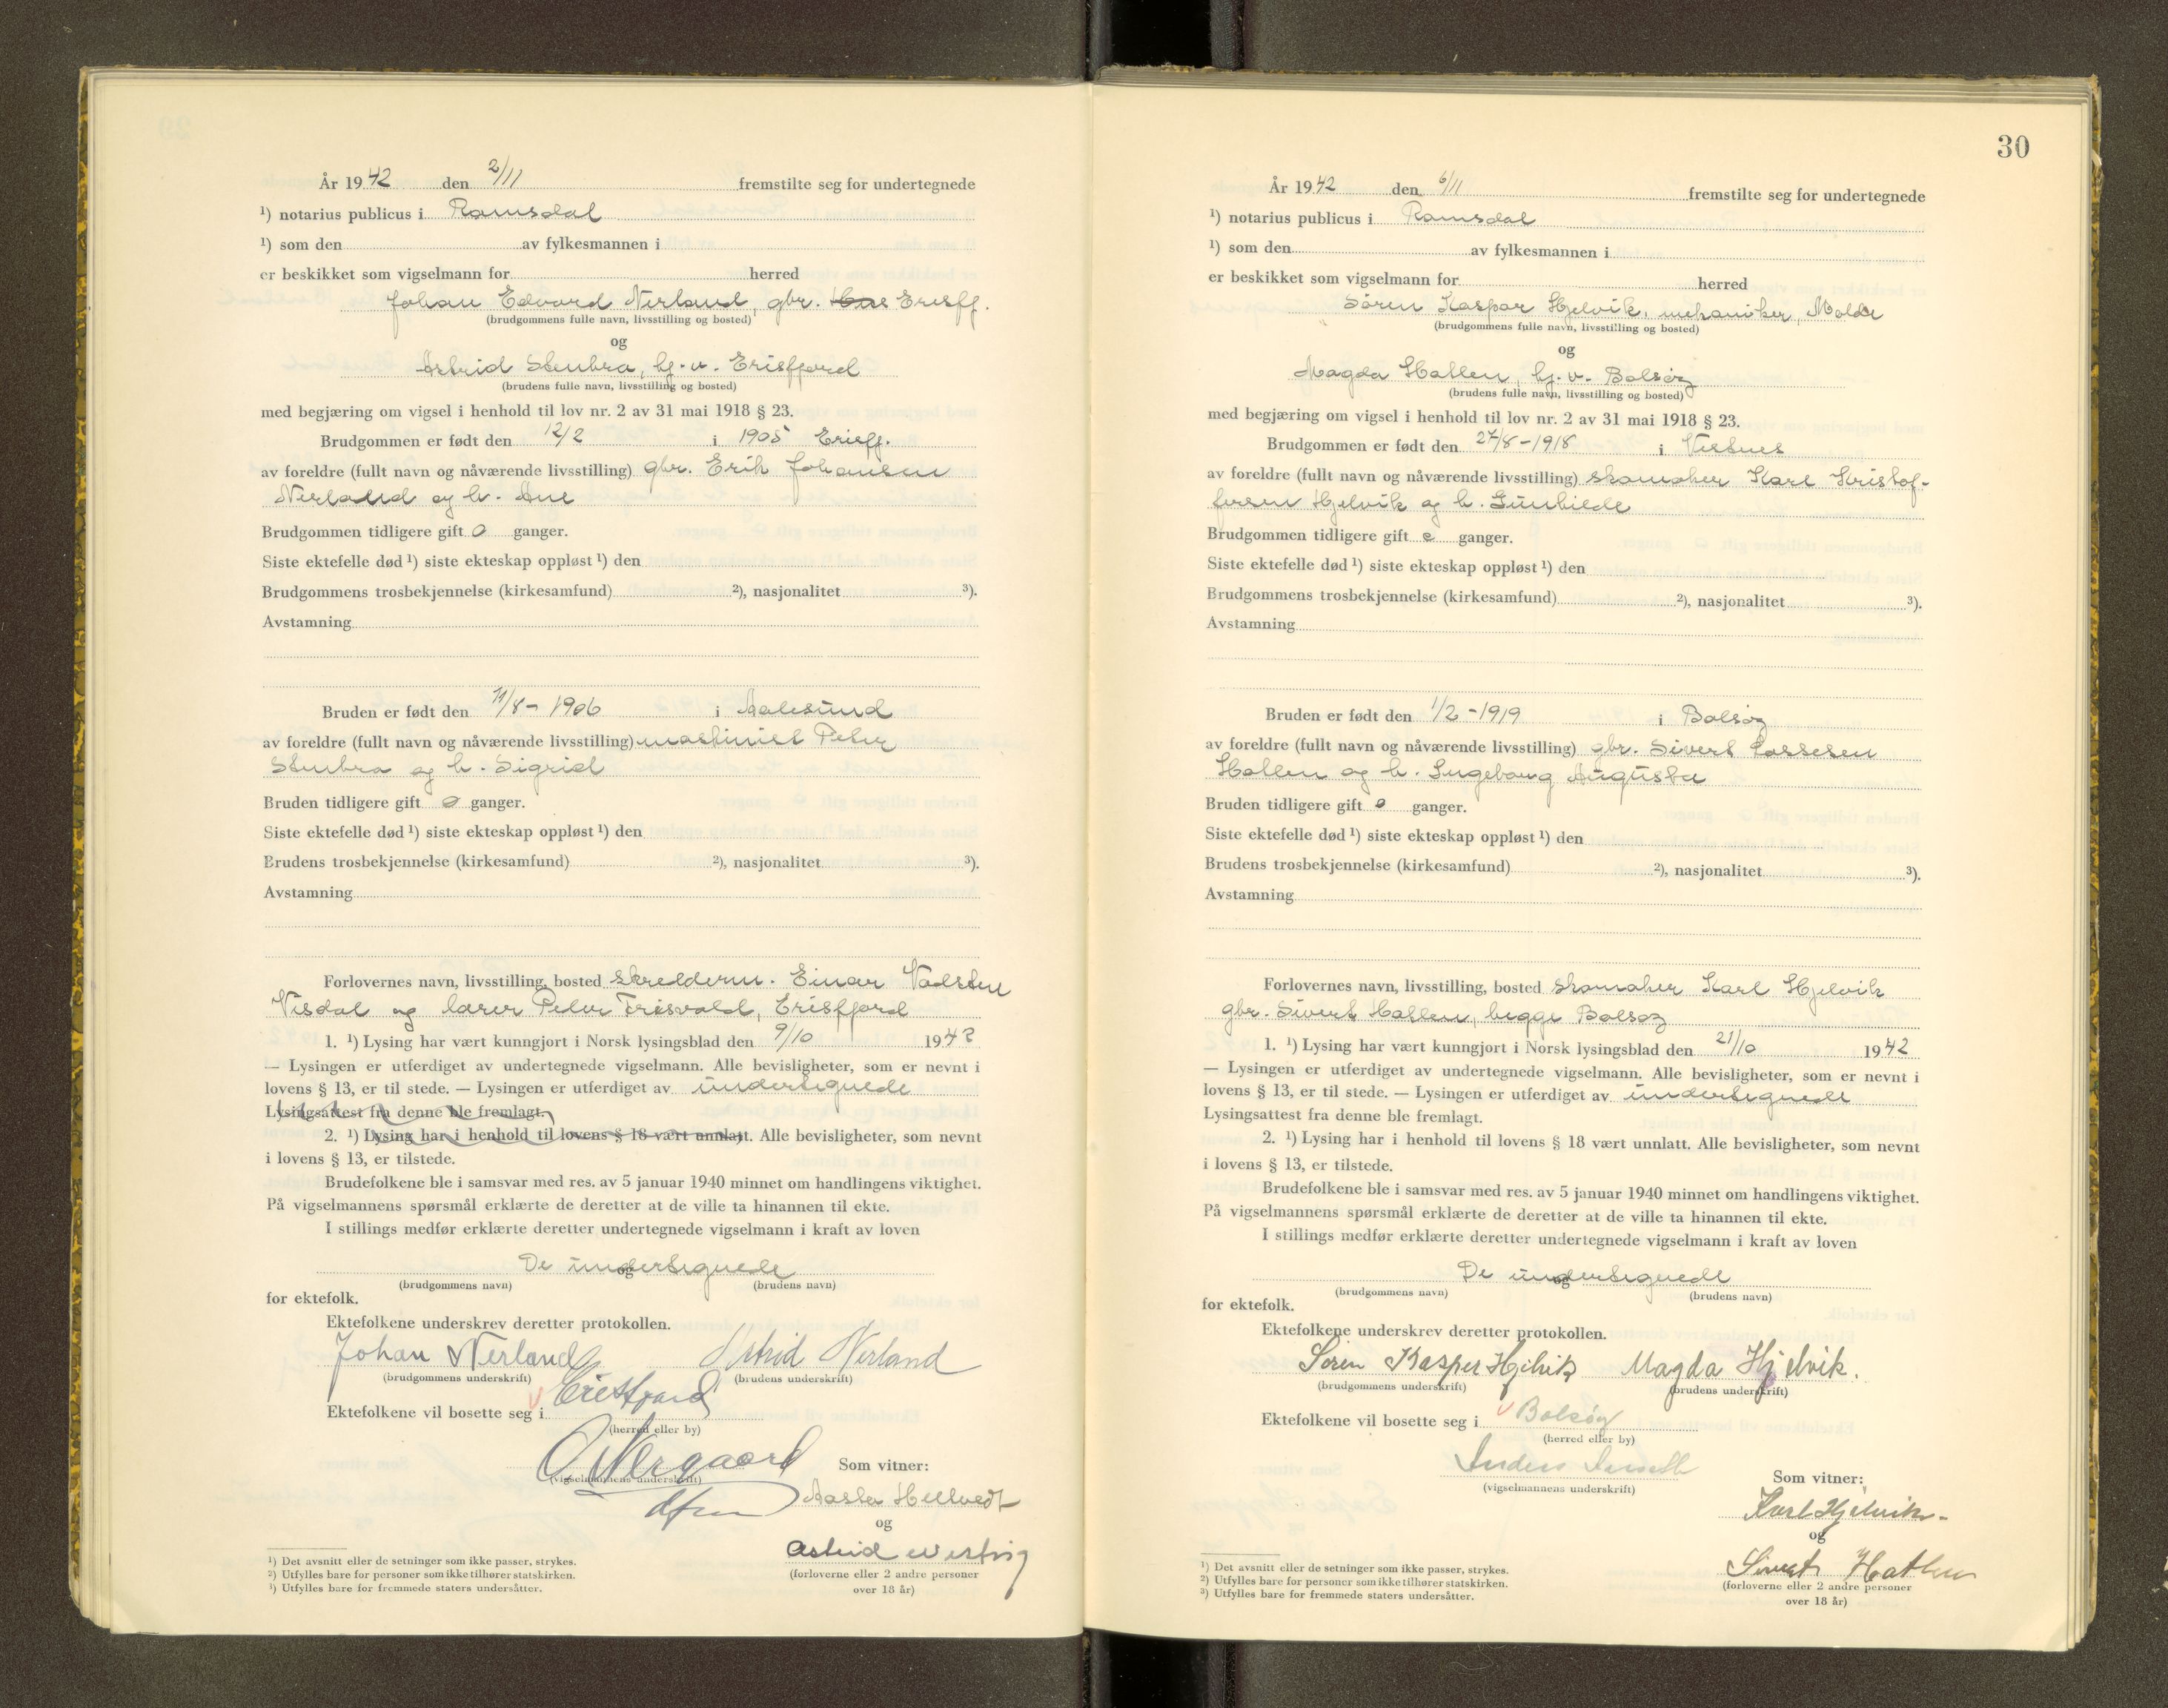 År 1942 den 2/11 fremstilte seg for undertegnede
¹) notarius publicus i Romsdal
¹) som den av fylkesmannen i
er beskikket som vigselmann for herred
Johan Edvard Nerland, gbr. Eresfj.
(brudgommens fulle navn, livsstilling og bosted)
og
Astrid Stenbra, hj.v. Erisfjord
(brudens fulle navn, livsstilling og bosted)
med begjæring om vigsel i henhold til lov nr. 2 av 31 mai 1918 § 23.
Brudgommen er født den 12/2 i 1905 Erisfj.
av foreldre (fullt navn og nåværende livsstilling) gbr. Erik Johansen
Nerland og h. Ane
Brudgommen tidligere gift 0 ganger.
Siste ektefelle død ¹) siste ekteskap oppløst ¹) den
Brudgommens trosbekjennelse (kirkesamfund) ²), nasjonalitet ³).
Avstamning
Bruden er født den 11/8 - 1906 i Aalesund
av foreldre (fullt navn og nåværende livsstilling) maskinist Peter
Stenbra og h. Sigrid
Bruden tidligere gift 0 ganger.
Siste ektefelle død ¹) siste ekteskap oppløst ¹) den
Brudens trosbekjennelse (kirkesamfund) ²), nasjonalitet ³).
Avstamning
Forlovernes navn, livsstilling, bosted skredderm. Einar
Visdal og lærer Peder Frisvold, Erisfjord
1. ¹) Lysing har vært kunngjort i Norsk lysingsblad den 9/10 1942
— Lysingen er utferdiget av undertegnede vigselmann. Alle bevisligheter, som er nevnt i
lovens § 13, er til stede. — Lysingen er utferdiget av undertegnede
Lysingsattest fra denne ble fremlagt.
2. ¹) Lysing har i henhold til lovens § 18 vært unnlatt. Alle bevisligheter, som nevnt
i lovens § 13, er tilstede.
Brudefolkene ble i samsvar med res. av 5 januar 1940 minnet om handlingens viktighet.
På vigselmannens spørsmål erklærte de deretter at de ville ta hinannen til ekte.
I stillings medfør erklærte deretter undertegnede vigselmann i kraft av loven
De undertegnede
og
(brudgommens navn) (brudens navn)
for ektefolk.
Ektefolkene underskrev deretter protokollen.
Johan Nerland Astrid Nerland
(brudgommens underskrift) (brudens underskrift)
Ektefolkene vil bosette seg i Eresfjord
(herred eller by)
(vigselmannens underskrift)
Som vitner:
og
Astrid
(forloverne eller 2 andre personer
over 18 år)
¹) Det avsnitt eller de setninger som ikke passer, strykes.
²) Utfylles bare for personer som ikke tilhører statskirken.
³) Utfylles bare for fremmede staters undersåtter.
30
År 1942 den 6/11 fremstilte seg for undertegnede
¹) notarius publicus i Romsdal
¹) som den av fylkesmannen i
er beskikket som vigselmann for herred
Søren Kaspar Hjelvik, mekaniker, Molde
(brudgommens fulle navn, livsstilling og bosted)
og
Magda Hatlen, hj.v. Bolsøy
(brudens fulle navn, livsstilling og bosted)
med begjæring om vigsel i henhold til lov nr. 2 av 31 mai 1918 § 23.
Brudgommen er født den 27/8-1918 i Vestnes
av foreldre (fullt navn og nåværende livsstilling) skomaker Karl Kristof-
fersen Hjelvik og h. Gunhilde
Brudgommen tidligere gift 0 ganger.
Siste ektefelle død ¹) siste ekteskap oppløst ¹) den
Brudgommens trosbekjennelse (kirkesamfund) ²), nasjonalitet ³).
Avstamning
Bruden er født den 1/2-1919 i Bolsøy
av foreldre (fullt navn og nåværende livsstilling) gbr. Sivert Lassesen
Hatlen og h. Ingeborg Augusta
Bruden tidligere gift 0 ganger.
Siste ektefelle død ¹) siste ekteskap oppløst ¹) den
Brudens trosbekjennelse (kirkesamfund) ²), nasjonalitet ³).
Avstamning
Forlovernes navn, livsstilling, bosted skomaker Karl Hjelvik
gbr. Sivert Hatlen, begge Bolsøy
1. ¹) Lysing har vært kunngjort i Norsk lysingsblad den 21/10 1942
— Lysingen er utferdiget av undertegnede vigselmann. Alle bevisligheter, som er nevnt i
lovens § 13, er til stede. — Lysingen er utferdiget av undertegnede
Lysingsattest fra denne ble fremlagt.
2. ¹) Lysing har i henhold til lovens § 18 vært unnlatt. Alle bevisligheter, som nevnt
i lovens § 13, er tilstede.
Brudefolkene ble i samsvar med res. av 5 januar 1940 minnet om handlingens viktighet.
På vigselmannens spørsmål erklærte de deretter at de ville ta hinannen til ekte.
I stillings medfør erklærte deretter undertegnede vigselmann i kraft av loven
De undertegnede
og
(brudgommens navn) (brudens navn)
for ektefolk.
Ektefolkene underskrev deretter protokollen.
Søren Kasper Hjelvik Magda Hjelvik.
(brudgommens underskrift) (brudens underskrift)
Ektefolkene vil bosette seg i Bolsøy
(herred eller by)
Anders
(vigselmannens underskrift)
Som vitner:
Karl Hjelvik
og
Sivert Hatlen
(forloverne eller 2 andre personer
over 18 år)
¹) Det avsnitt eller de setninger som ikke passer, strykes.
²) Utfylles bare for personer som ikke tilhører statskirken.
³) Utfylles bare for fremmede staters undersåtter.